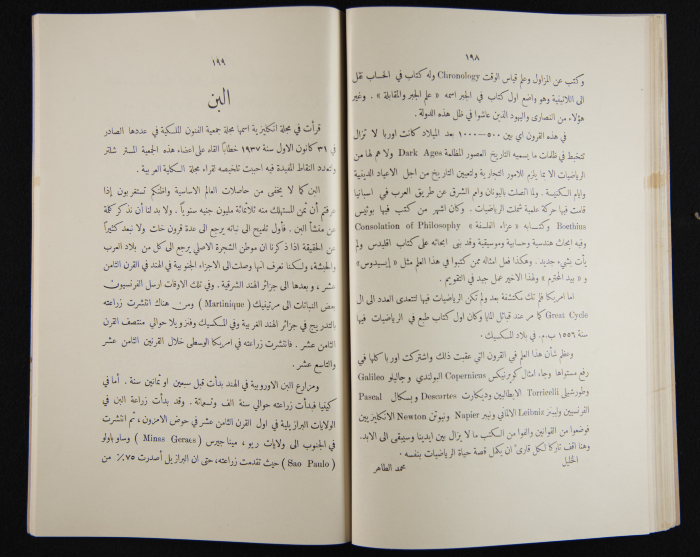 ١٩٨
وكتب عن المزاول وعلم قياس الوقت Chronology وله كتاب في الحساب نقل
الى اللاتينية وهو واضع اول كتاب في الجبر اسمه « علم الجبر والمقابلة » . وغير
هؤلاء من النصارى واليهود الذين عاشوا في ظل هذه الدولة .
في هذه القرون اي بين ٥٠٠ — ١٠٠٠ بعد الميلاد كانت اوربا لا تزال
تتخبط في ظلمات ما يسميه التاريخ العصور المظلمة Dark Ages ولا هم لها من
الرياضيات الا بما يلزم للامور التجارية ولتعيين التاريخ من اجل الاعياد الدينية
وايام الكنيسة . ولما اتصلت باليونان وامم الشرق عن طريق العرب في اسبانيا
قامت فيها حركة علمية شملت الرياضيات . وكان اشهر من كتب فيها بوئيس
Boethius وكتابه « عزاء الفلسفة » Consolation of Philosophy
وفيه ابحاث هندسية وحسابية وموسيقية وقد بنى ابحاثه على كتاب اقليدس ولم
يأت بشيء جديد . وهكذا فعل امثاله ممن كتبوا في هذا العلم مثل « إيسيدوس »
و « بيد المحترم » ولهذا الاخير عمل جيد في التقويم .
اما امريكا فلم تك مكتشفة بعد ولم تكن الرياضيات فيها لتتعدى العدد الى ال
Great Cycle كما مر عند قبائل المايا وكان اول كتاب طبع في الرياضيات فيها
سنة ١٥٥٦ ب.م. في بلاد المكسيك .
وعظم شأن هذا العلم في القرون التي عقبت ذلك واشتركت اوربا كلها في
رفع مستواها وجاء امثال كوبرنيكس Copernicus البولندي وجاليلو Galileo
وطورشيلي Torricelli الايطاليين وديكارت Descartes وبسكال Pascal
الفرنسيين وليبنز Leibniz الالماني ونيبر Napier ونيوتن Newton الانكليزيين
فوضعوا من القوانين والفوا من الكتب ما لا يزال بين ايدينا وسيبقى الى الابد.
وهنا اقف تاركا لكل قارئ ان يكمل قصة حياة الرياضيات بنفسه .
الخليل
محمد الطاهر
١٩٩
البن
قرأت في مجلة انكليزية اسمها مجلة جمعية الفنون الملكية في عددها الصادر
في ٣١ كانون الاول سنة ١٩٣٧ خطاباً القاه على اعضاء هذه الجمعية المستر شلتر
ولتعدد النقاط المفيدة فيه احببت تلخيصه لقراء مجلة الكلية العربية .
البن كما لا يخفى من حاصلات العالم الاساسية واظنكم تستغربون إذا
عرفتم أن ثمن المستهلك منه ثلاثمائة مليون جنيه سنوياً . ولا بد لنا أن نذكر كلمة
عن منشأ البن . فأول تلميح الى نباته يرجع الى عدة قرون خلت ولا نبعد كثيراً
عن الحقيقة اذا ذكرنا ان موطن الشجرة الاصلي يرجع الى كل من بلاد العرب
والحبشة، ولكننا نعرف انها وصلت الى الاجزاء الجنوبية في الهند في القرن الثامن
عشر ، وبعدها الى جزائر الهند الشرقية . وفي تلك الاوقات ارسل الفرنسيون
بعض النباتات الى مرتينيك ( Martinique ) ومن هناك انتشرت زراعته
بالتدريج في جزائر الهند الغربية وفي المكسيك وفنزويلا حوالي منتصف القرن
الثامن عشر . فانتشرت زراعته في امريكا الوسطى خلال القرنين الثامن عشر
والتاسع عشر .
ومزارع البن الاوروبية في الهند بدأت قبل سبعين او ثمانين سنة . أما في
كينيا فبدأت زراعته حوالي سنة الف وتسعمائة . وقد بدأت زراعة البن في
الولايات البرازيلية في اول القرن الثامن عشر في حوض الامزون، ثم انتشرت
في الجنوب الى ولايات ريو ، مينا جيرس ( Minas Geraes ) وساوباولو
( Sao Paulo ) حيث تقدمت زراعته، حتى ان البرازيل أصدرت ٧٥٪ من